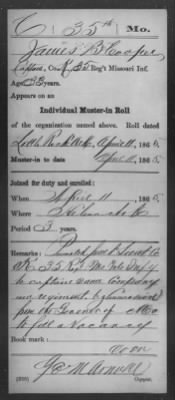 C 35th Mo.
James B Cooper
Captain, Co. K, 35 Reg't Missouri Inf.
Age 38 years.
Appears on an
Individual Muster-in Roll
of the organization named above. Roll dated
Little Rock Ark, April 11, 1865.
Muster-in to date April 11, 1865.
Joined for duty and enrolled:
When April 11, 1865.
Where Helena Ark
Period 3 years.
Remarks: Promoted from Lieut Co
K 35 Regt Mo Vols Inf'y
to captain same company
and regiment by commission
from the Governor of Mo
to fill a vacancy
Book mark:
Geo M Arnold
Copyist.